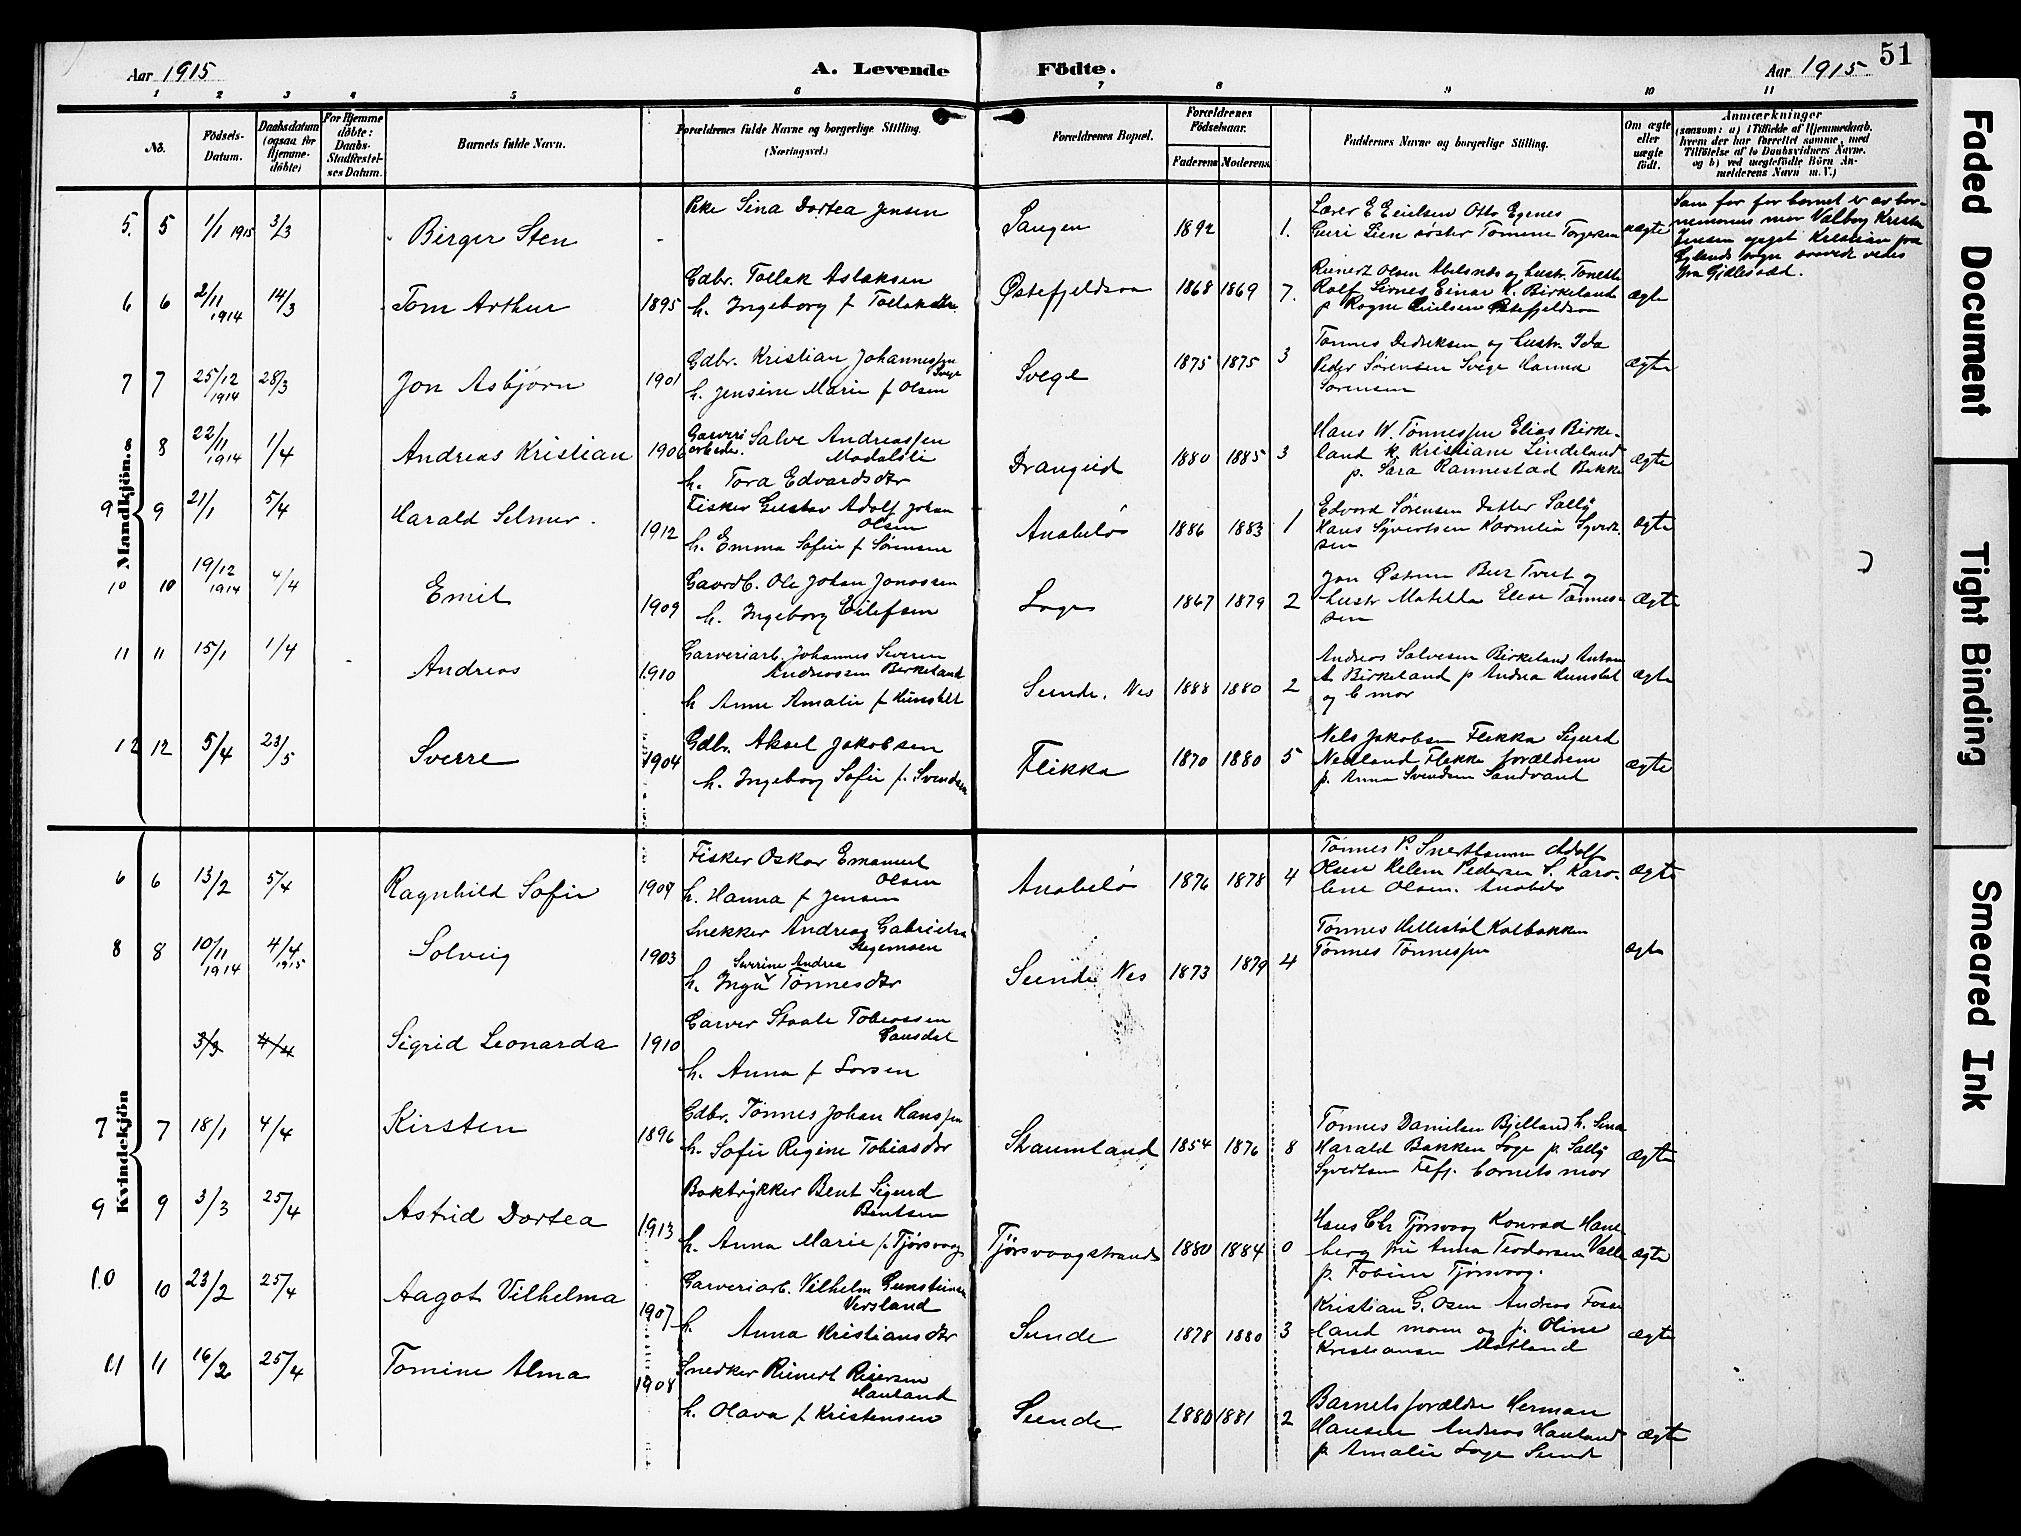 51
Aar 1915
A. Levende
Födte.
Aar 1915
1 2 3 4 5 6 7 8 9 10 11
No.
Födsels-
Datum.
Daabsdatum
(ogsaa for
Hjemme-
döbte)
For Hjemme
döbte:
Daabs-
Stadfæstel-
ses Datum.
Barnets fulde Navn.
Forældrenes fulde Navne og borgerlige Stilling.
(Næringsvei.)
Forældrenes Bopæl.
Forældrenes
Födselsaar.
Faderens
Moderens.
Faddernes Navne og borgerlige Stilling.
Om ægte
eller
uægte
födt.
Anmærkninger
(saasom: a) i Tilfælde af Hjemmedaab.
hvem der har forrettet samme, med
Tilföielse af to Daabsvidners Navne.
og b) ved uægtefödte Börn An-
melderens Navn m. V.)
Mandkjön.
5. 5 1/1 1915 3/3 Birger Sten
Pike Sina Dortea Jensen
Saugen 1892 1.
Lærer E Eielsen Otto Egenes
Guri Lien søster Tomine Torgersen
uægte
6 6 2/11 1914 14/3 Tom Arthur 1895
Gdbr. Tollak Aslaksen
h. Ingeborg f Tollaksen
Østefjeldsaa 1868 1869 7.
Reinert Olsen Abelsnæs og hustr. Tonette
Rolf Sirnes Einar K. Birkeland
p Ragna Eielsen Østefjeldsaa
ægte
7 7 25/12 1914 28/3 Jon Asbjørn 1901
Gdbr. Kristian Johannessen
Svege
h. Jensine Marie f Olsen
Svege 1875 1875 3
Tønnes Dedriksen og hustr. Ida
Peder Sørensen Svege Hanna
Sørensen
ægte
8 8 22/11 1914 1/4 Andreas Kristian 1906
Garveri
arbeder. Salve Andreassen
Modalsli
h. Tora Edvardsdtr
Drangeid 1880 1885 3
Hans W. Tønnessen Elias Birke-
land k. Kristiane Lindeland
p. Sara Rannestad Bakke
ægte
9 9 21/1 5/4 Harald Selmer. 1912
Fisker Gustav Adolf Johan
Olsen
h. Emma Sofie f Sørensen
Anabeløe 1886 1883 1
Edvard Sørensen Datter Sally
Hans Syvertsen Kornelia Syvert
sen
ægte
10 10 19/12 1914 4/4 Emil 1909
Gaardb. Ole Johan Jonassen
h. Ingeborg Eilefsen
Loge 1867 1879 2
hustr Matilda Elise Tønnes-
sen
ægte
11 11 15/1 1/4 Andreas 1910
Garveriarb. Johannes Severin
Andreassen Birkeland
h Anne Amalie f Hunsbet
Sunde, Nes 1888 1880 2
Andreas Salvesen Birkeland Anton
A Birkeland p Andrea Hunsbet
og b mor
ægte
12 12 5/4 23/5 Sverre 1904
Gdbr. Aksel Jakobsen
h. Ingeborg Sofie f. Svendsen
Flikka 1870 1880 5
Nels Jakobsen Flikka Sigurd
Nedland Flikka forældrene
p. Anna Svendsen Sandvant
ægte
Kvindekjön
6 6 13/2 5/4 Ragnhild Sofie 1907
Fisker Oskar Emanuel
Olsen
h. Hanna f Jensen
Anabeløe 1876 1878 4
Olsen Helene Pedersen S. Karo-
line Olsen. Anabelø
ægte
8 8 10/11 1914 4/4 1915 Solveig 1903
Snekker Andreas Gabrielsen
Stegemoen
Severine Andrea
h. Inga Tønnesdtr
Sunde Nes 1873 1879 4
Tønnes Hellestøl Kolbakken
Tønnes Tønnessen
ægte
3/3 4/4 Sigrid Leonarda 1910
Garver Staale Tobiassen
Gausdal
h. Anna f Larsen
7 7 18/1 4/4 Kirsten 1896
Gdbr. Tønnes Johan Hanssen
h. Sofie Regine Tobiasdtr
Straumland 1854 1876 8
Tønnes Danielsen Bjelland h. Sina
Harald Bakken Loge p. Sally
Syvertsen Fefj. barnets mor
ægte
9 9 3/3 25/4 Astrid Dortea 1913
Boktrykker Bent Sigurd
Bentsen
h. Anna Marie f. Tjørsvaag
Tjørsvaagstrand 1880 1884 0
Hans Chr Tjørsvaag Konrad Hane
berg fru Anna Teodorsen Valle
p. Tobine Tjørsvaag.
ægte
10 10 23/2 25/4 Aagot Vilhelma 1907
Garveriarb. Vilhelm Gunsteinsen
Versland
h. Anna Kristiansdtr
Sunde 1878 1880 3
Kristian G. Osen Andreas Fosse
land moren og p. Oline
Kristiansen Motland
ægte
11 11 16/2 25/4 Tomine Alma 1908
Snedker Reinert Reiersen
Hauland
h. Olava f Kristensen
Sunde 1880 1881 2
Barnets forældre Herman
Hansen Andreas Hauland
p. Amalie Loge Sunde
ægte
Faded Document
Tight Binding
Smeared Ink